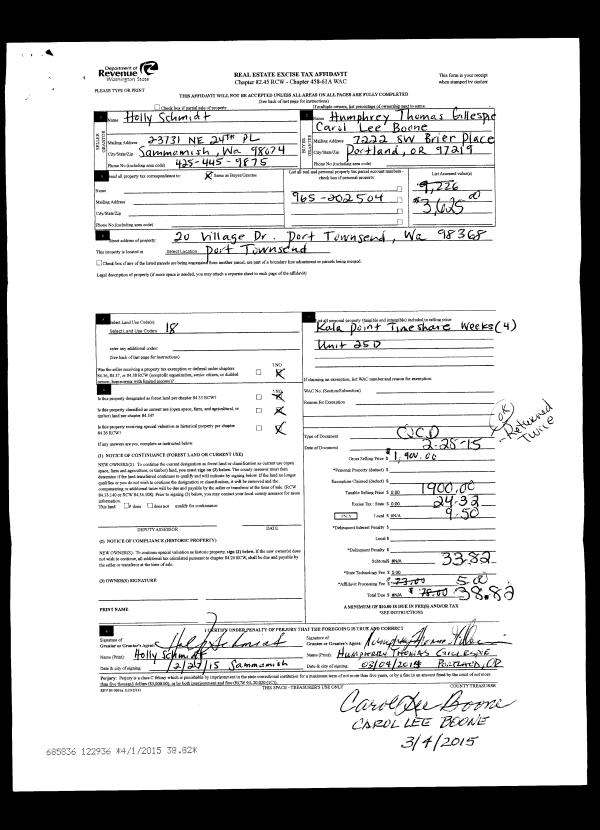 Department of
Revenue
Washington State
REAL ESTATE EXCISE TAX AFFIDAVIT
This form is your receipt
when stamped by cashier.
Chapter 82.45 RCW - Chapter 458-61A WAC
PLEASE TYPE OR PRINT
THIS AFFIDAVIT WILL NOT BE ACCEPTED UNLESS ALL AREAS ON ALL PAGES ARE FULLY COMPLETED
(See back of last page for instructions)
Check box if partial sale of property
If multiple owners, list percentage of ownership next to name.
Name Holly Schmidt
Name Humphrey Thomas Gillespie
Carol Lee Boone
SELLER
GRANTOR
Mailing Address 23731 NE 24TH PL
City/State/Zip Sammamish, Wa 98074
Phone No (including area code) 425-445-9875
Mailing Address 7222 SW Brier Place
City/State/Zip Portland, OR 97219
Phone No (including area code)
Send all property tax correspondence to: Same as Buyer/Grantee
List all real and personal property tax parcel account numbers - check box if personal property
List Assessed value(s)
Name
Mailing Address
City/State/Zip
Phone No (including area code)
965-202504
9,226
$3,625.00
Street address of property: 20 Village Dr. Port Townsend, Wa 98368
This property is located in Select Location Port Townsend
Check box if any of the listed parcels are being segregated from another parcel, are part of a boundary line adjustment or parcels being merged.
Legal description of property (if more space is needed, you may attach a separate sheet to each page of the affidavit)
Select Land Use Code(s)
Select Land Use Codes 18
enter any additional codes:
(See back of last page for instructions)
Was the seller receiving a property tax exemption or deferral under chapters
84.36, 84.37, or 84.38 RCW (nonprofit organization, senior citizen, or disabled
person, homeowner with limited income)?
List all personal property (tangible and intangible) included in selling price
Kala Point Timeshare Weeks (4)
Unit 25D
Is this property designated as forest land per chapter 84.33 RCW?
Is this property classified as current use (open space, farm and agricultural, or
timber) land per chapter 84.34?
Is this property receiving special valuation as historical property per chapter
84.26 RCW?
If any answers are yes, complete as instructed below.
If claiming an exemption, list WAC number and reason for exemption:
WAC No. (Section/Subsection)
Reason for Exemption
OK
- Returned
Twice
(1) NOTICE OF CONTINUANCE (FOREST LAND OR CURRENT USE)
NEW OWNER(S): To continue the current designation as forest land or classification as current use (open
space, farm and agriculture, or timber) land, you must sign on (3) below. The county assessor must then
determine if the land transferred continues to qualify and will indicate by signing below. If the land no longer
qualifies or you do not wish to continue the designation or classification, it will be removed and the
compensating or additional taxes will be due and payable by the seller or transferor at the time of sale. (RCW
84.33.140 or RCW 84.34.108). Prior to signing (3) below, you may contact your local county assessor for more
information.
This land does does not qualify for continuance.
DEPUTY ASSESSOR DATE
(2) NOTICE OF COMPLIANCE (HISTORIC PROPERTY)
NEW OWNER(S): To continue special valuation as historic property, sign (3) below. If the new owner(s) does
not wish to continue, all additional tax calculated pursuant to chapter 84.26 RCW, shall be due and payable by
the seller or transferor at the time of sale.
(3) OWNER(S) SIGNATURE
PRINT NAME
Type of Document QCD
Date of Document 2-28-15
Gross Selling Price $ 1,900.00
*Personal Property (deduct) $
Exemption Claimed (deduct) $
Taxable Selling Price $ 0.00 1900.00
Excise Tax : State $ 0.00 24.32
Local $ #N/A 9.50
*Delinquent Interest: State $
Local $
*Delinquent Penalty $
Subtotal $ #N/A 33.82
*State Technology Fee $ 5.00
*Affidavit Processing Fee $ 5.00
Total Due $ #N/A 38.82
A MINIMUM OF $10.00 IS DUE IN FEE(S) AND/OR TAX
*SEE INSTRUCTIONS
I CERTIFY UNDER PENALTY OF PERJURY THAT THE FOREGOING IS TRUE AND CORRECT
Signature of
Grantor or Grantor's Agent Holly Schmidt
Name (Print) Holly Schmidt
Date & city of signing: 2/27/15 Sammamish
Signature of
Grantee or Grantee's Agent
Name (Print) HUMPHREY THOMAS GILLESPIE
Date & city of signing: 03/04/2015 PORTLAND, OR
Perjury: Perjury is a class C felony which is punishable by imprisonment in the state correctional institution for a maximum term of not more than five years, or by a fine in an amount fixed by the court of not more
than five thousand dollars ($5,000.00), or by both imprisonment and fine (RCW 9A.20.020 (1C)).
THIS SPACE - TREASURER'S USE ONLY
COUNTY TREASURER
Carol Lee Boone
CAROL LEE BOONE
3/4/2015
685836 122936 *4/1/2015 38.82*